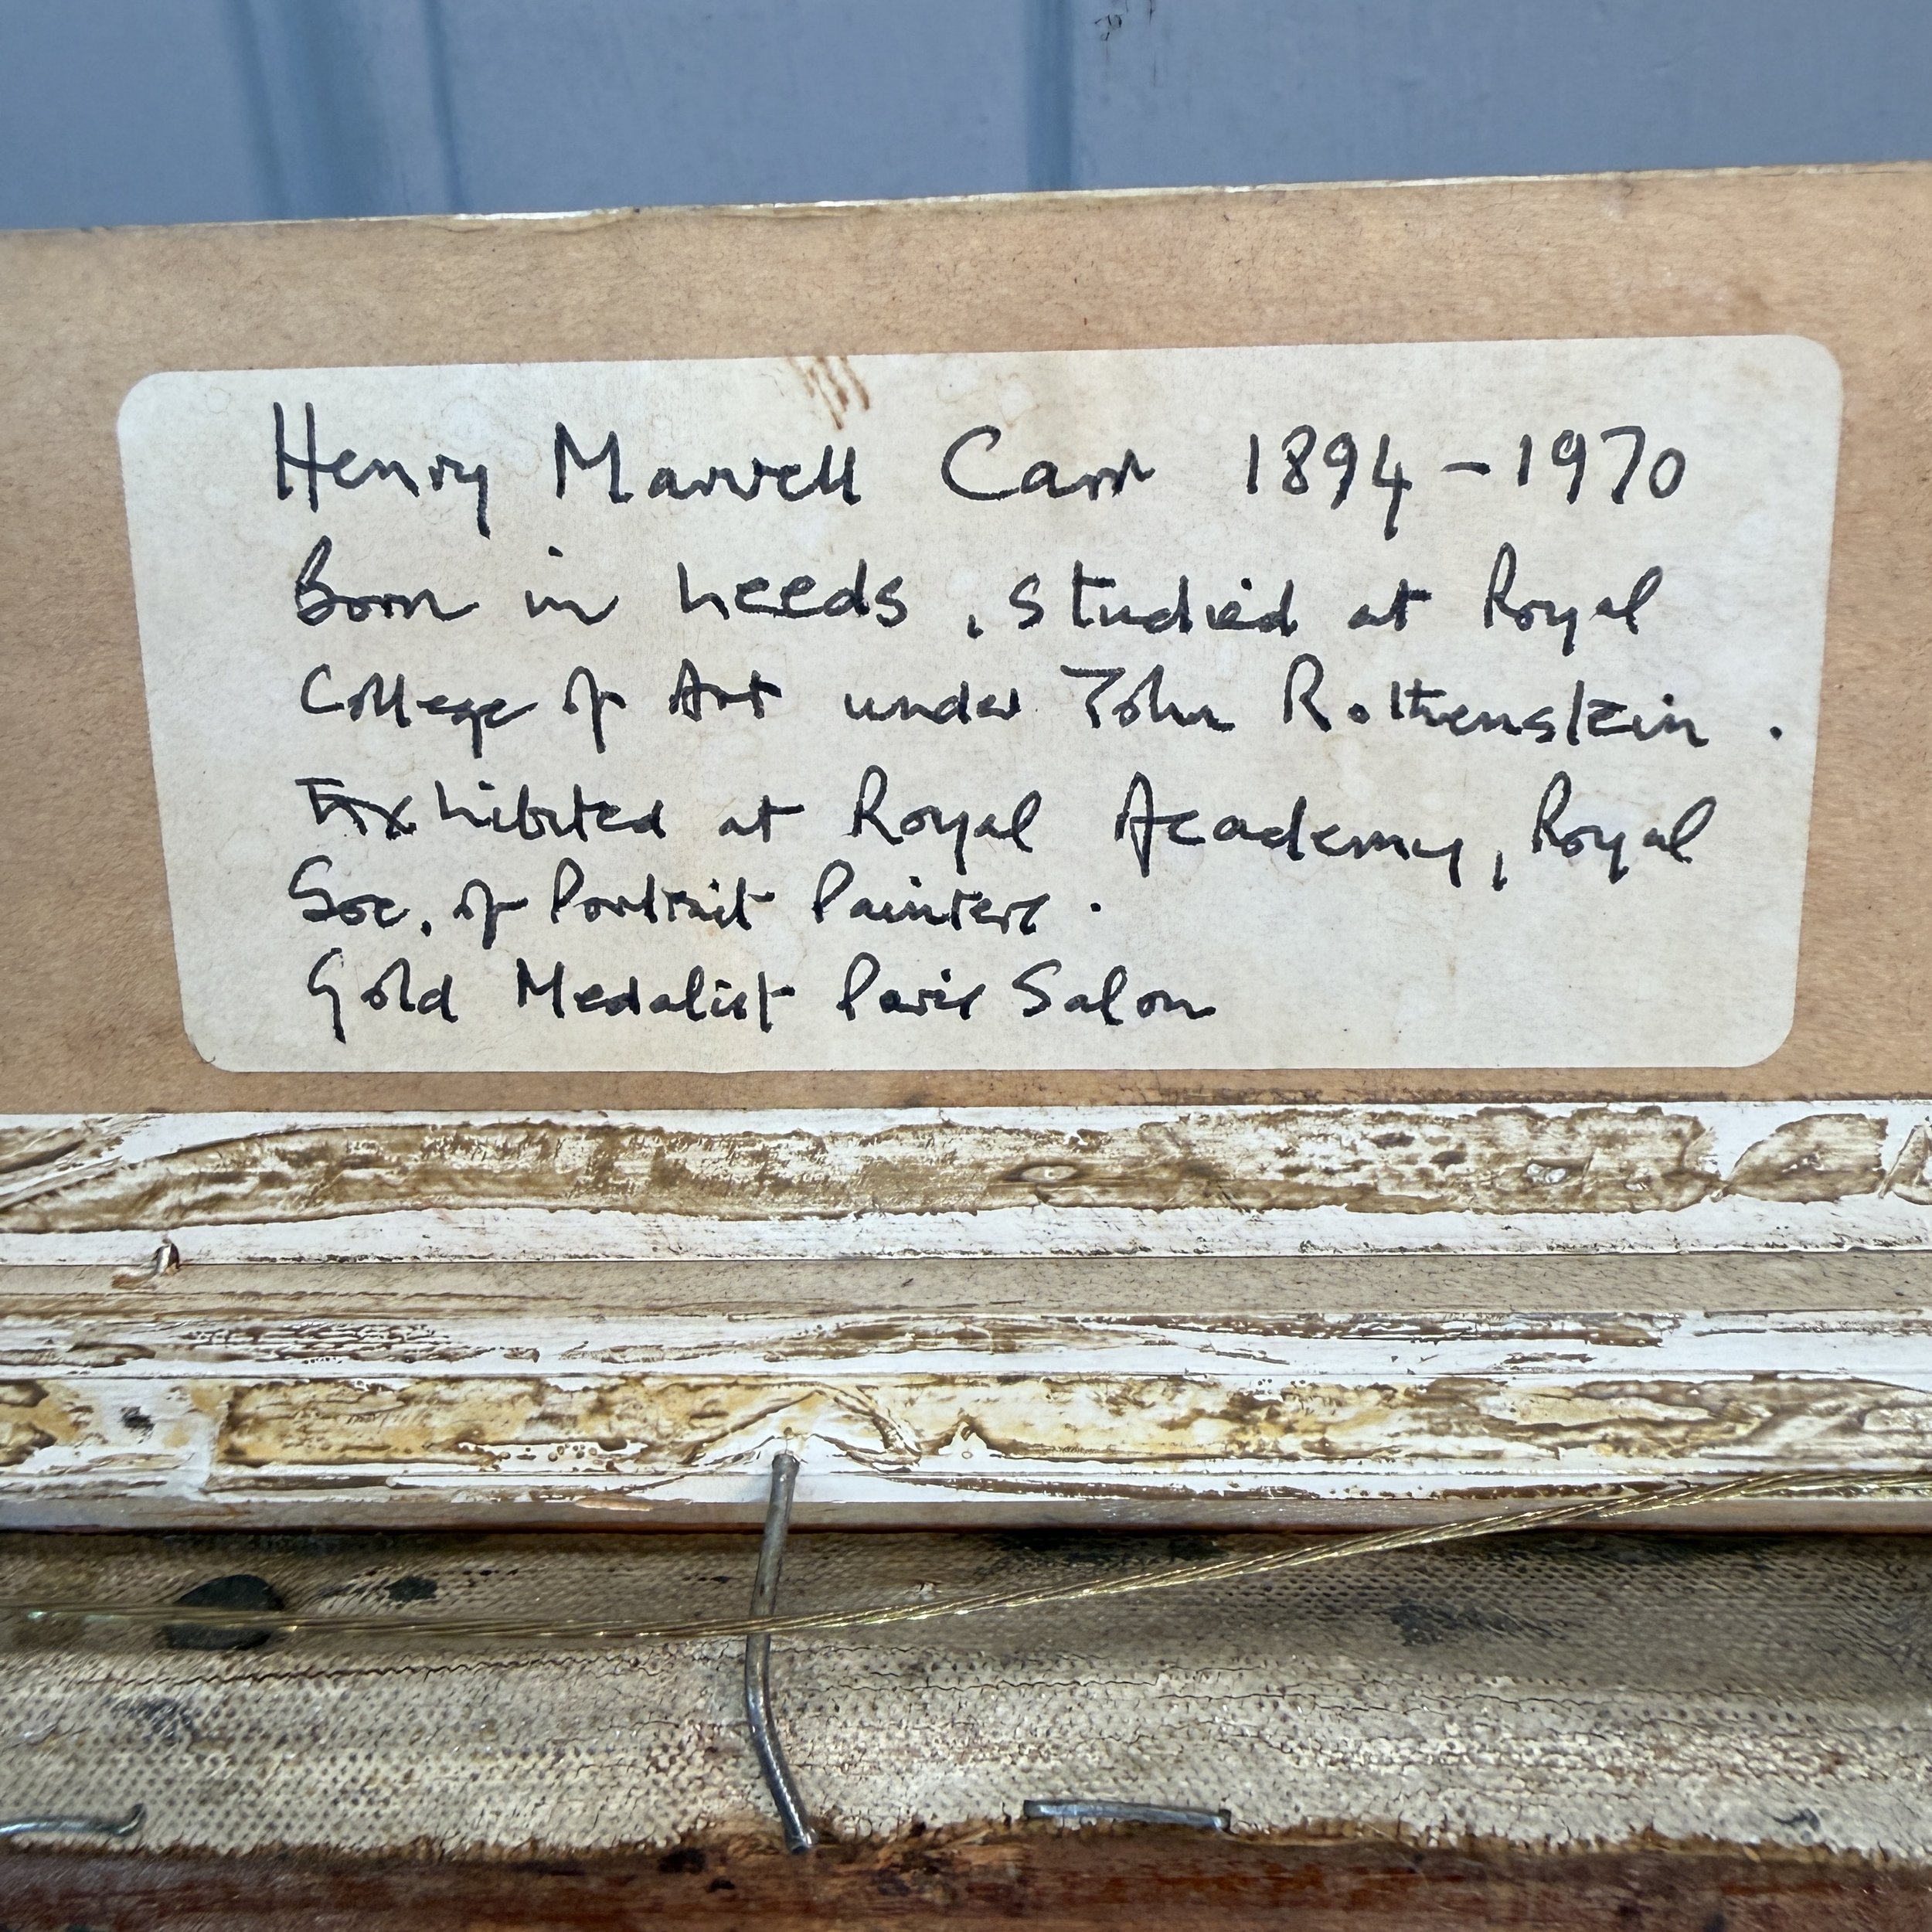 Henry Marvell Carr 1894-1970
Born in Leeds, studied at Royal
College of Art under John Rothenstein.
Exhibited at Royal Academy, Royal
Soc. of Portrait Painters.
Gold Medalist Paris Salon